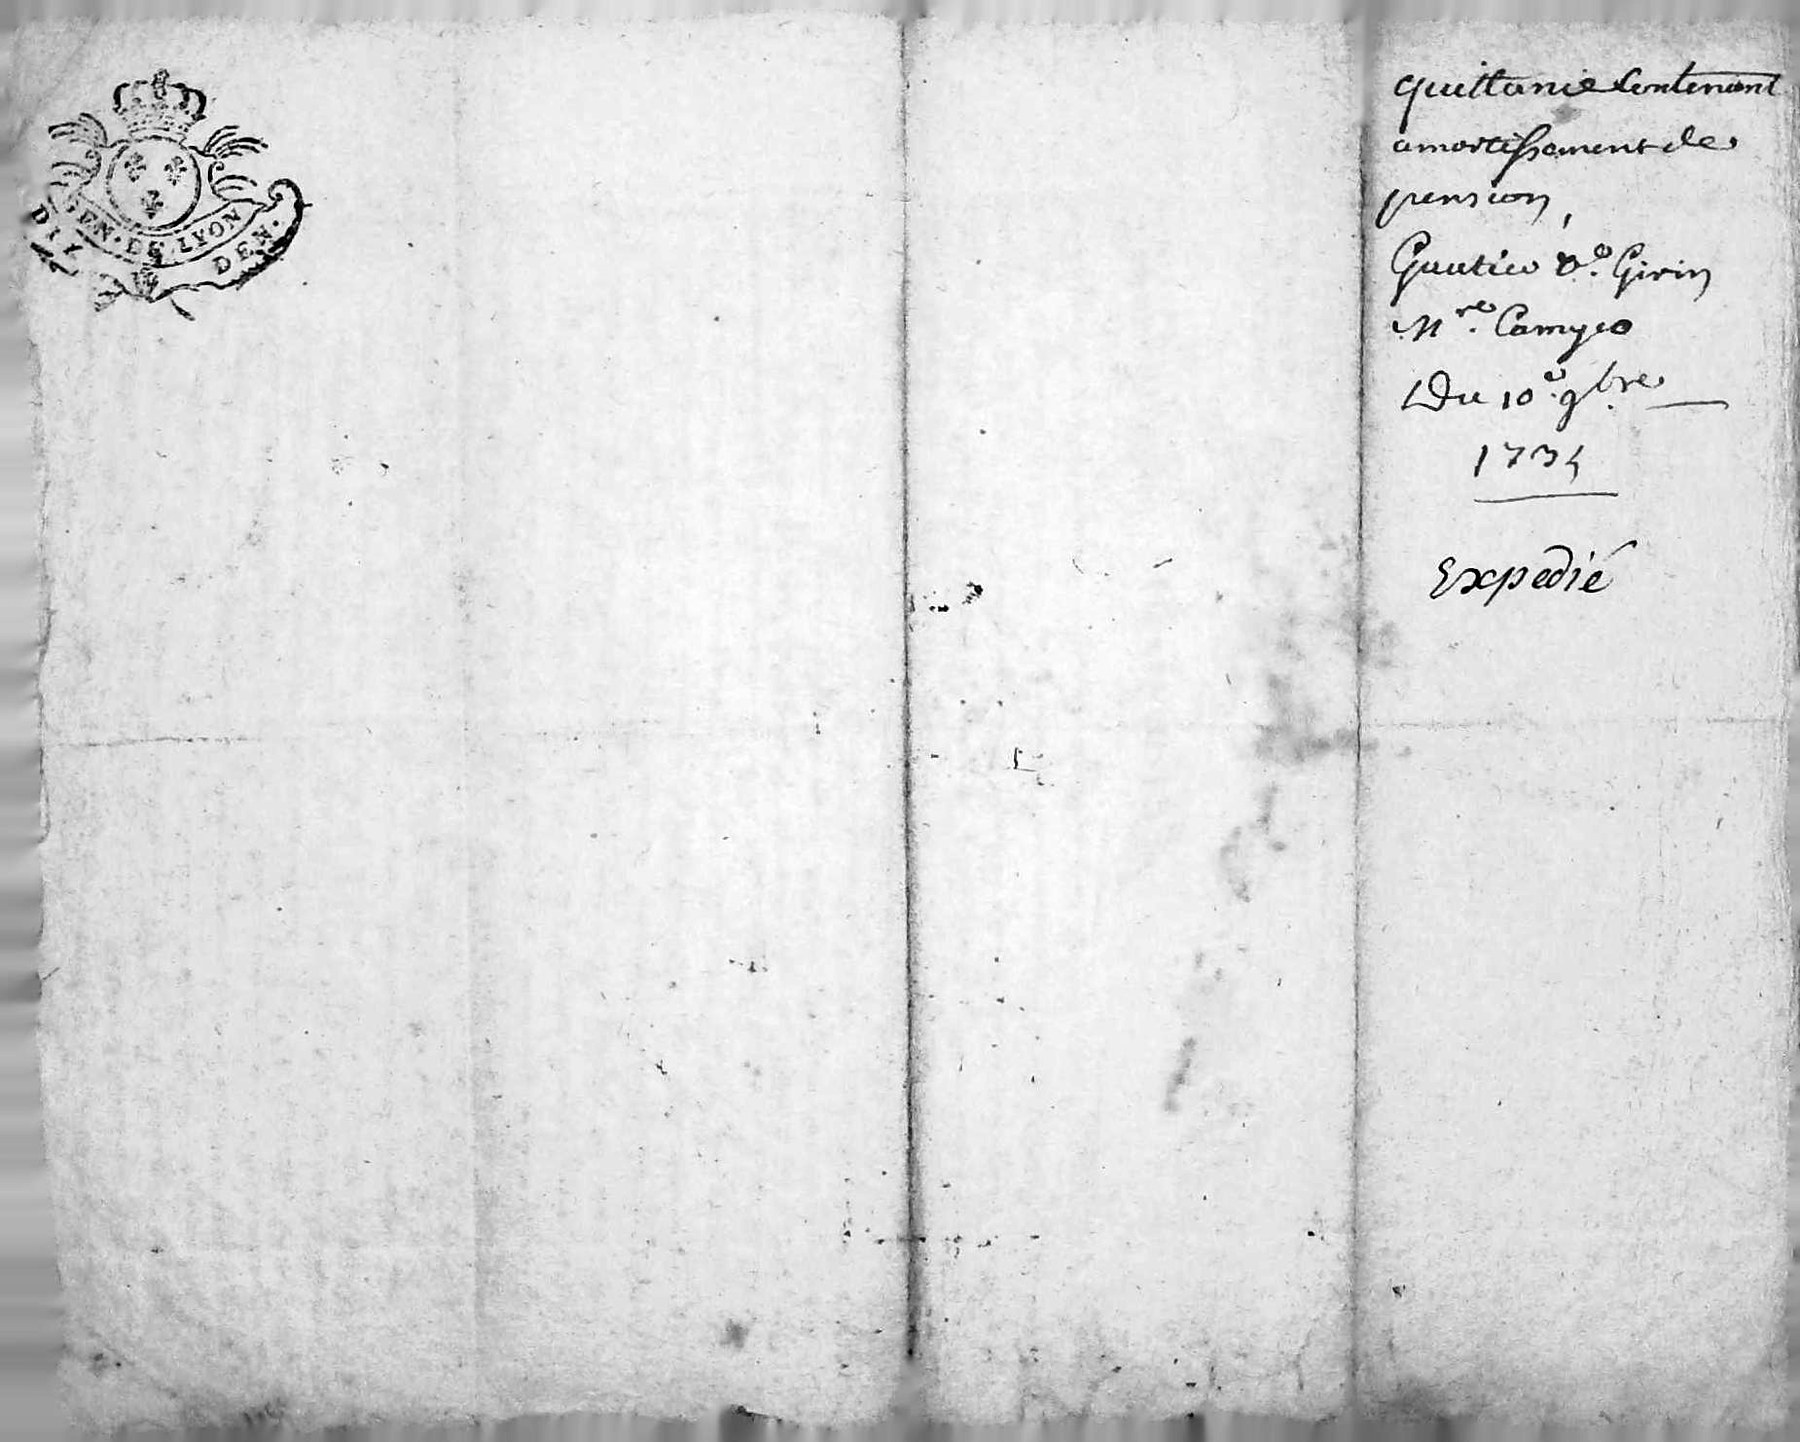 GEN. DE LYON
DIX DEN.
quittance Contenant
amortissement de
pension
Gautier Vo. Girin
Mre. Camyer
Du 10e. 9bre
1734
Expedié